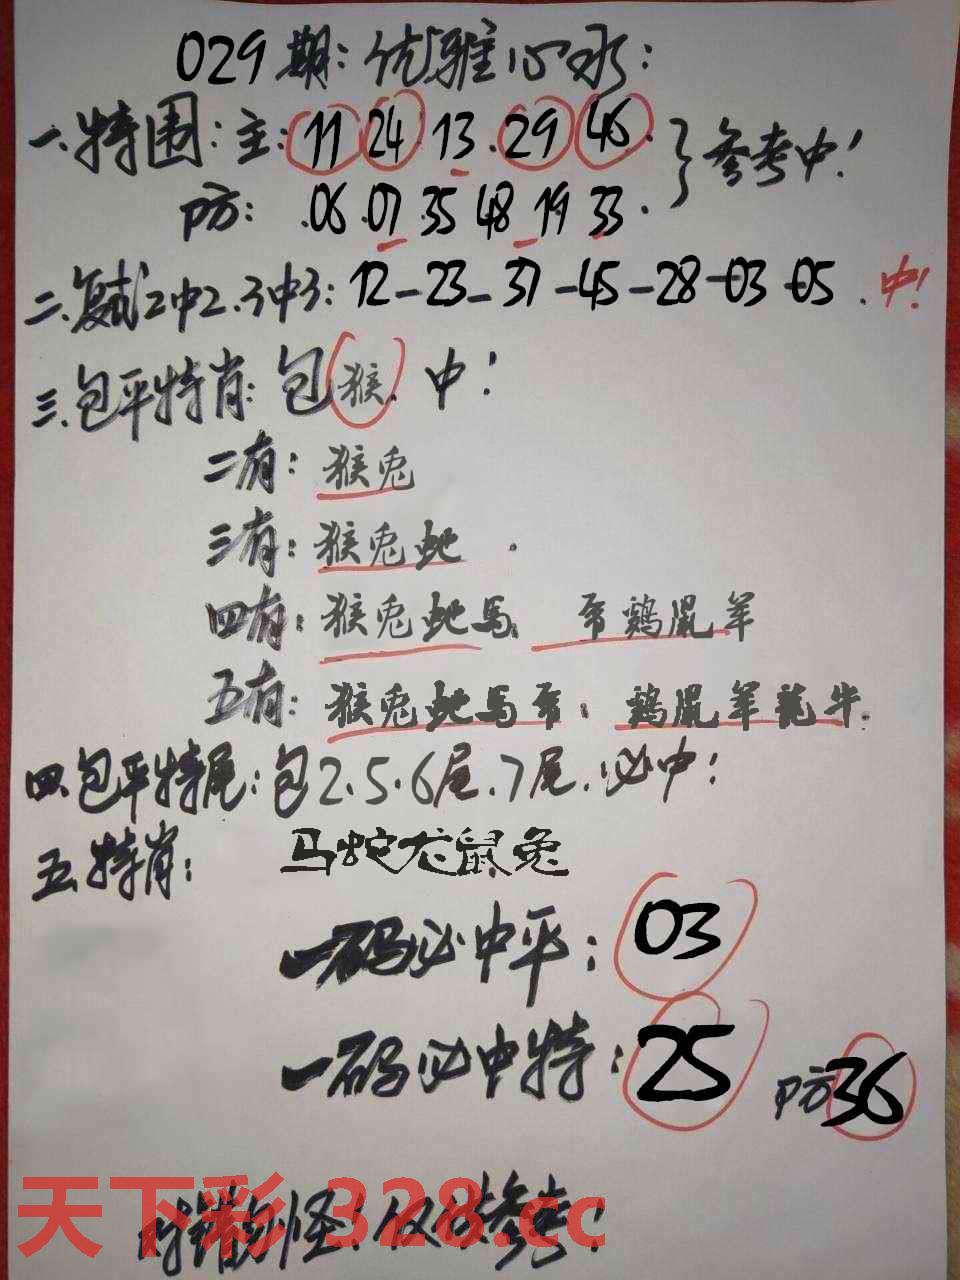 029期:优雅心水:
一.特围:主:11 24 13.29 46.
防: .06.07.35 48 19 33.
}参考中!
二.复式2中2.3中3:12-23-37-45-28-03-05.中!
三.包平特肖:包猴.中!
二有:猴兔
三有:猴兔蛇.
四有:猴兔蛇马、 帍鹞鼠羊
五有:猴兔蛇马帍: 鹞鼠羊龍牛.
四.包平特尾:包2.5.6尾.7尾.必中!
五.特肖: 马蛇龙鼠兔
一码必中平:03
一码必中特:25 防36
对错勿怪!仅供参考!
天下彩 328.cc